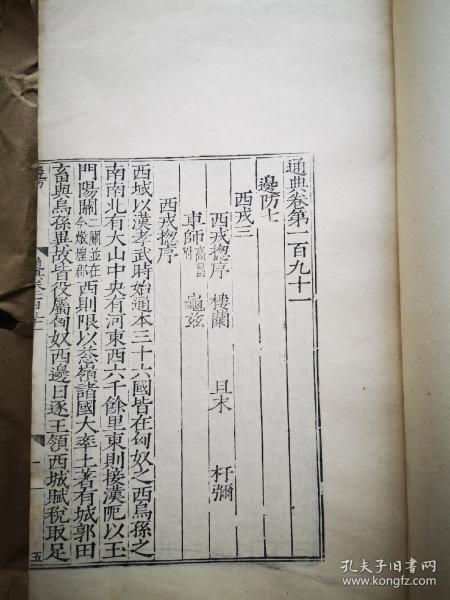 通典卷第一百九十一
邊防七
西戎三
西戎揔序 樓蘭 且末 杅彌
車師高昌附 龜兹
西戎揔序
西域以漢孝武時始通本三十六國皆在匈奴之西烏孫之
南南北有大山中央有河東西六千餘里東則接漢阨以玉
門陽關二關並在今燉煌郡西則限以葱嶺諸國大率土著有城郭田
畜與烏孫異故皆役屬匈奴西邊日逐王領西域賦稅取足
五
孔夫子旧书网
www.kongfz.com